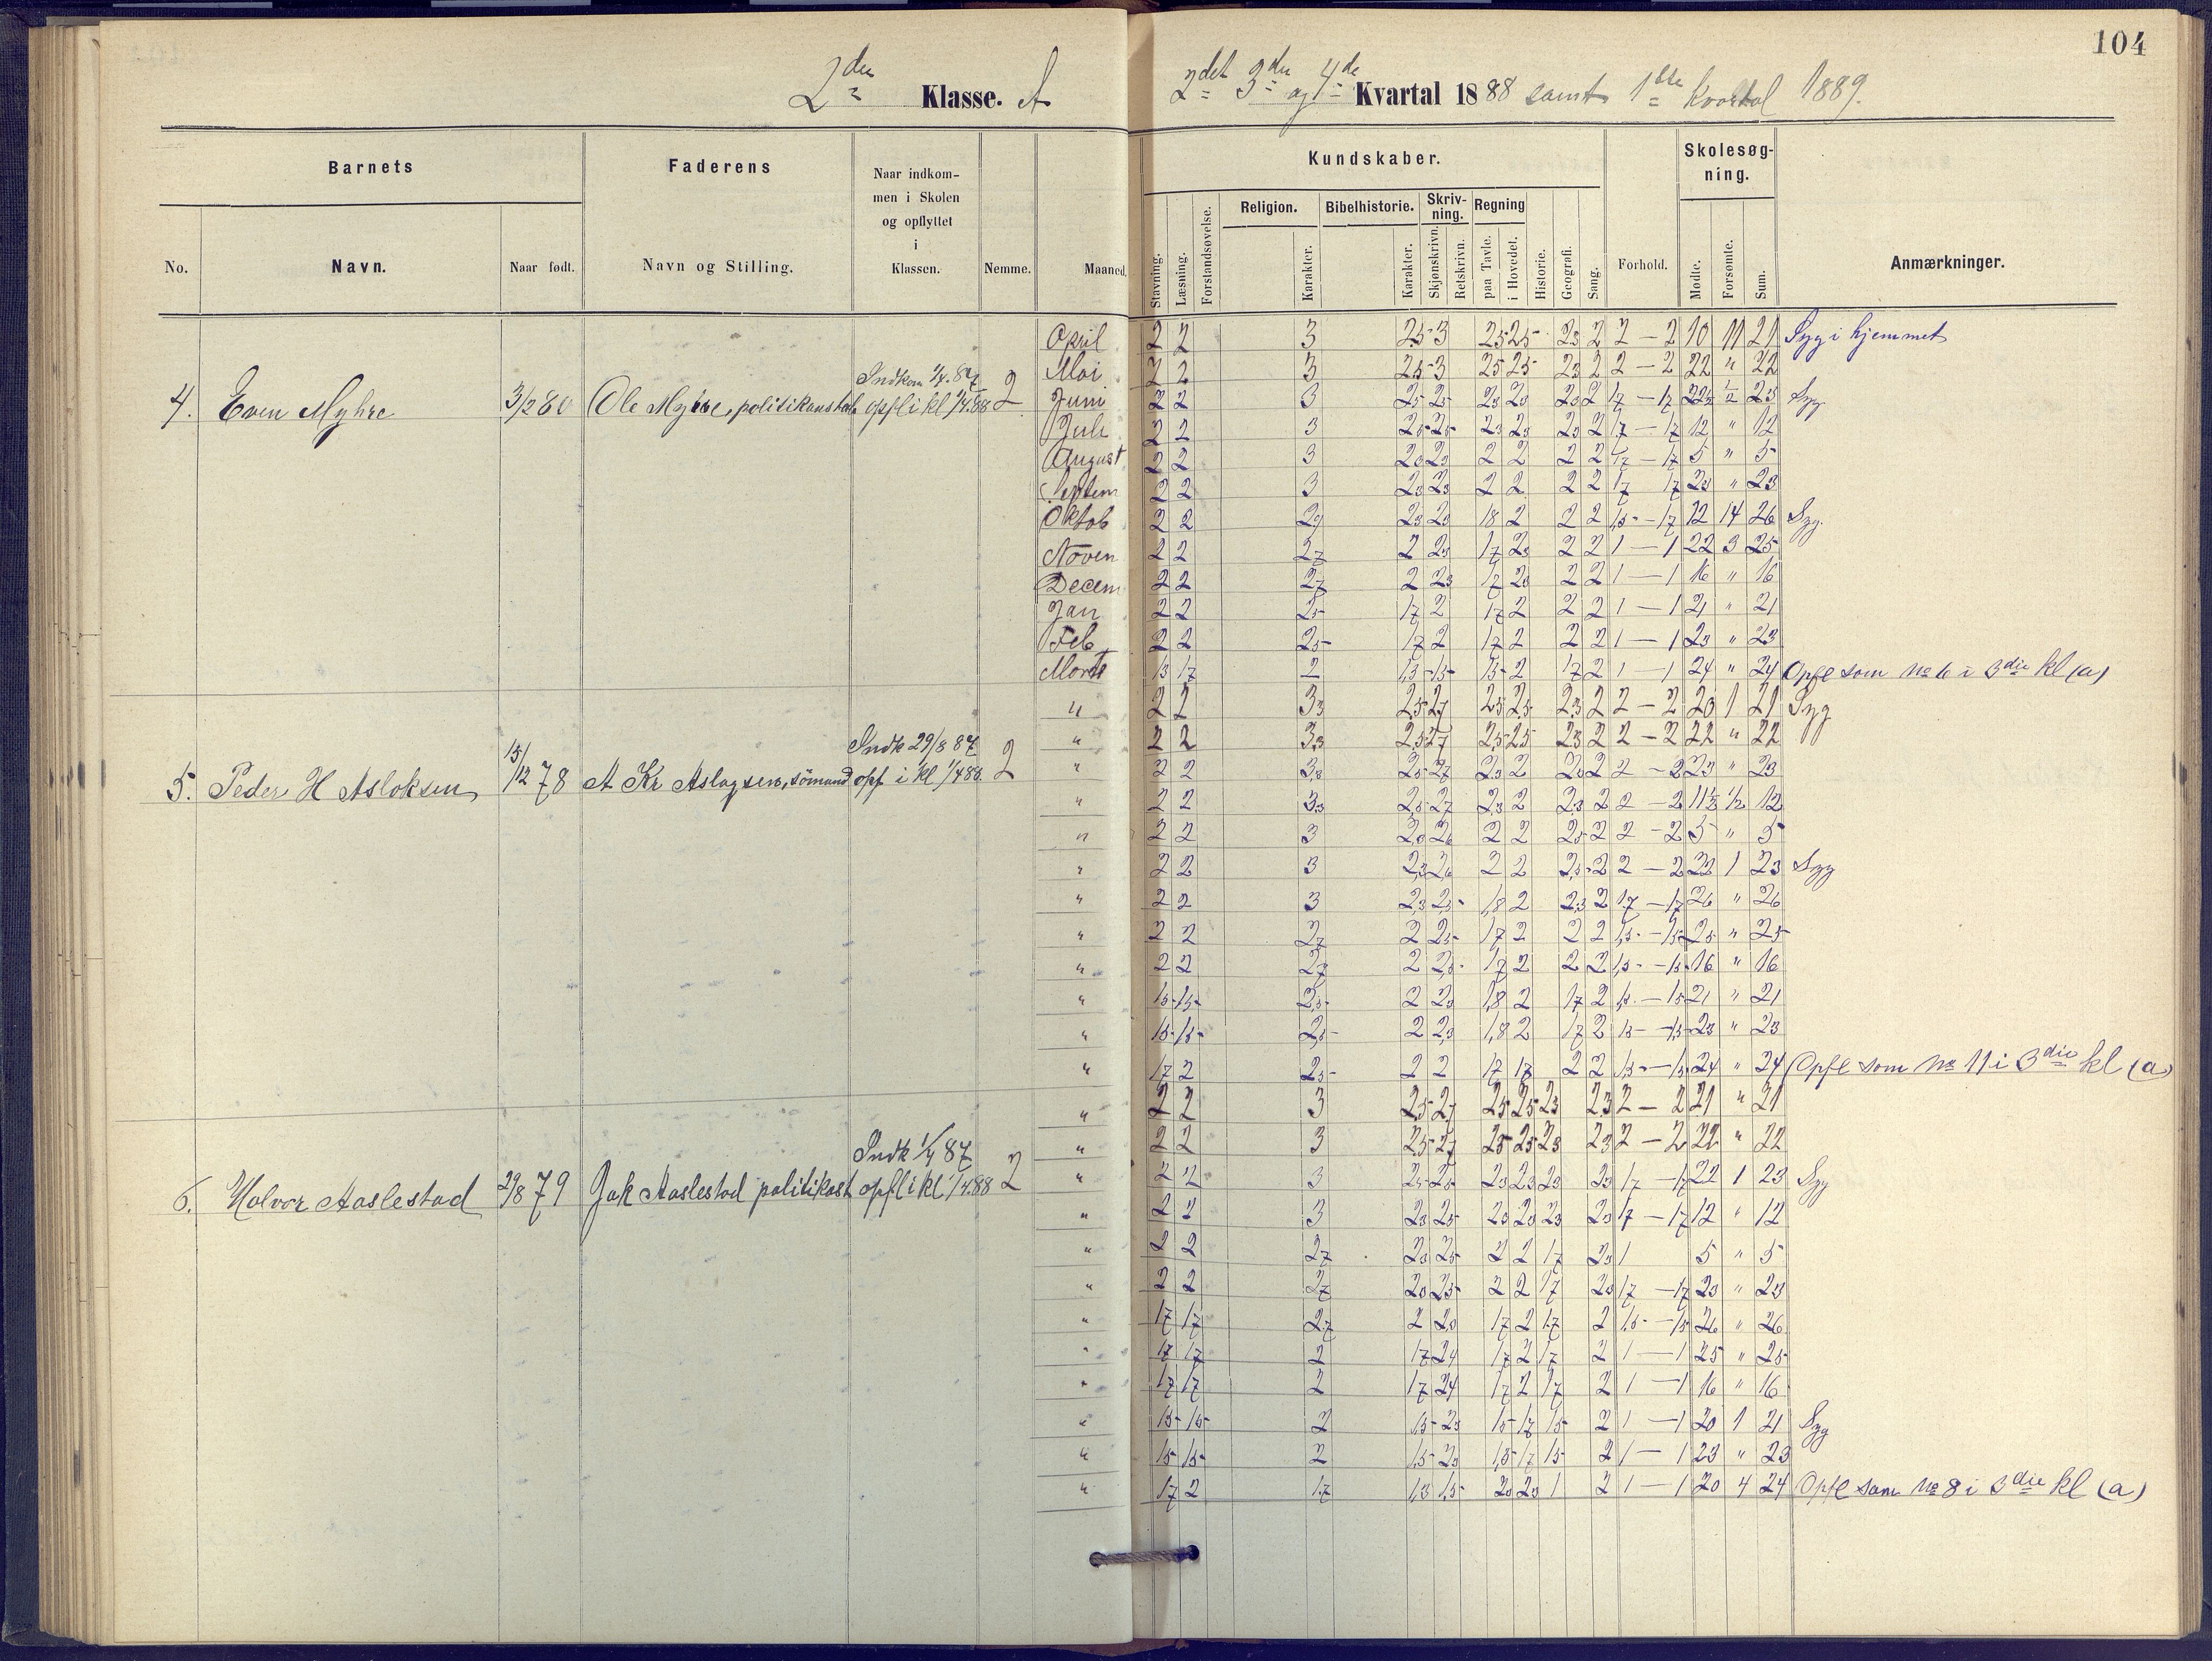 104
2den Klasse. A
2det 3die og 4de Kvartal 1888 samt 1ste Kvartal 1889.
Barnets
Faderens
Naar indkommen i Skolen og opflyttet i Klassen.
Nemme.
Maaned.
Kundskaber.
Forhold.
Skolesøgning.
Anmærkninger.
No.
Navn.
Naar født.
Navn og Stilling.
Stavning.
Læsning.
Forstandsøvelse.
Religion.
Karakter.
Bibelhistorie.
Karakter.
Skrivning.
Skjønskrivn.
Retskrivn.
Regning
paa Tavle.
i Hovedet.
Historie.
Geografi.
Sang.
Mødte.
Forsømte.
Sum.
4. Even Myhre 3/2 80 Ole Myhre, politikonstab Indkom 1/4.87 opfl i kl 1/4.88 2
April 2 2 3 2,5 3 2,5 2,5 2,3 2 2 — 2 10 11 21 Syg i hjemmet
Mai 2 2 3 2,5 3 2,5 2,5 2,3 2 2 — 2 22 " 22
Juni 2 2 3 2,5 2,5 2,3 2,3 2,3 2 1,7 — 1,7 22½ ½ 23 Syg
Juli 2 2 3 2,5 2,5 2,3 2,3 2,3 2 1,7 — 1,7 12 " 12
August 2 2 3 2,3 2,3 2 2 2 2 1,7 — 1,7 5 " 5
Septem 2 2 3 2,3 2,3 2 2 2 2 1,7 1,7 23 " 23
Oktob 2 2 2,9 2,3 2,3 1,8 2 2 2 1,5 — 1,7 12 14 26 Syg.
Noven 2 2 2,7 2 2,3 1,7 2,3 2 2 1 — 1 22 3 25
Decem 2 2 2,7 2 2,3 1,7 2,3 2 2 1 — 1 16 " 16
Jan 2 2 2,5 1,7 2 1,7 2 2 2 1 — 1 21 " 21
Feb 2 2 2,5 1,7 2 1,7 2 2 2 1 — 1 23 " 23
Marts 1,5 1,7 2 1,5 1,5 1,5 2 1,7 2 1 — 1 24 " 24 Opfl som No 6 i 3die kl (a)
5. Peder H Asloksen 15/12 78 A Kr Aslagsen, sömand Indk 29/8 87 opf i kl 1/4 88. 2
" 2 2 3,3 2,5 2,7 2,5 2,5 2,3 2 2 — 2 20 1 21 Syg
" 2 2 3,3 2,5 2,7 2,5 2,5 2,3 2 2 — 2 22 " 22
" 2 2 3,3 2,5 2,7 2,3 2 2,3 2 2 — 2 23 " 23
" 2 2 3,3 2,5 2,7 2,3 2 2,3 2 2 — 2 11½ ½ 12
" 2 2 3 2,3 2,6 2 2 2,5 2 2 — 2 5 " 5
" 2 2 3 2,3 2,6 2 2 2,5 2 2 — 2 22 1 23 Syg
" 2 2 3 2,3 2,5 1,8 2 2,3 2 1,7 — 1,7 26 " 26
" 2 2 2,7 2 2,5 1,7 2 2 2 1,5 — 1,5 25 " 25
" 2 2 2,7 2 2,5 1,7 2 2 2 1,5 — 1,5 16 " 16
" 1,5 1,5 2,5 2 2,3 1,8 2 1,7 2 1,5 — 1,5 21 " 21
" 1,5 1,5 2,5 2 2,3 1,8 2 1,7 2 1,5 — 1,5 23 " 23
" 1,7 2 2,5 2 2 1,7 1,7 2 2 1,5 — 1,5 24 " 24 Opfl som No 11 i 3die kl (a)
6. Halvor Aaslestad 29/8 79 Jak Aaslestad politikost Indk 1/4 87 opfl i kl 1/4.88 2
" 2 2 3 2,5 2,7 2,5 2,5 2,3 2,3 2 — 2 21 " 21
" 2 2 3 2,5 2,7 2,5 2,5 2,3 2,3 2 — 2 22 " 22
" 2 2 3 2,5 2,5 2,3 2,3 2,3 2,3 1,7 — 1,7 22 1 23 Syg
" 2 2 3 2,3 2,5 2,3 2,3 2,3 2,3 1,7 — 1,7 12 " 12
" 2 2 2,7 2,3 2,5 2 2 1,7 2,3 1 5 " 5
" 2 2 2,7 2,3 2,5 2 2 1,7 2,3 1,7 — 1,7 23 " 23
" 1,7 1,7 2,7 2 2,3 1,7 2 1,7 2 1,5 — 1,5 26 " 26
" 1,7 1,7 2 1,7 2,4 1,7 2 1,7 2 1 — 1 25 " 25
" 1,7 1,7 2 1,7 2,4 1,7 2 1,7 2 1 — 1 16 " 16
" 1,5 1,5 2 1,5 2,3 1,5 1,7 1,5 2 1 — 1 20 1 21 Syg
" 1,5 1,5 2 1,5 2,3 1,5 1,7 1,5 2 1 — 1 23 " 23
" 1,7 2 1,7 1,3 1,5 2,3 2,3 1 2 1 — 1 20 4 24 Opfl som No 8 i 3die kl (a)